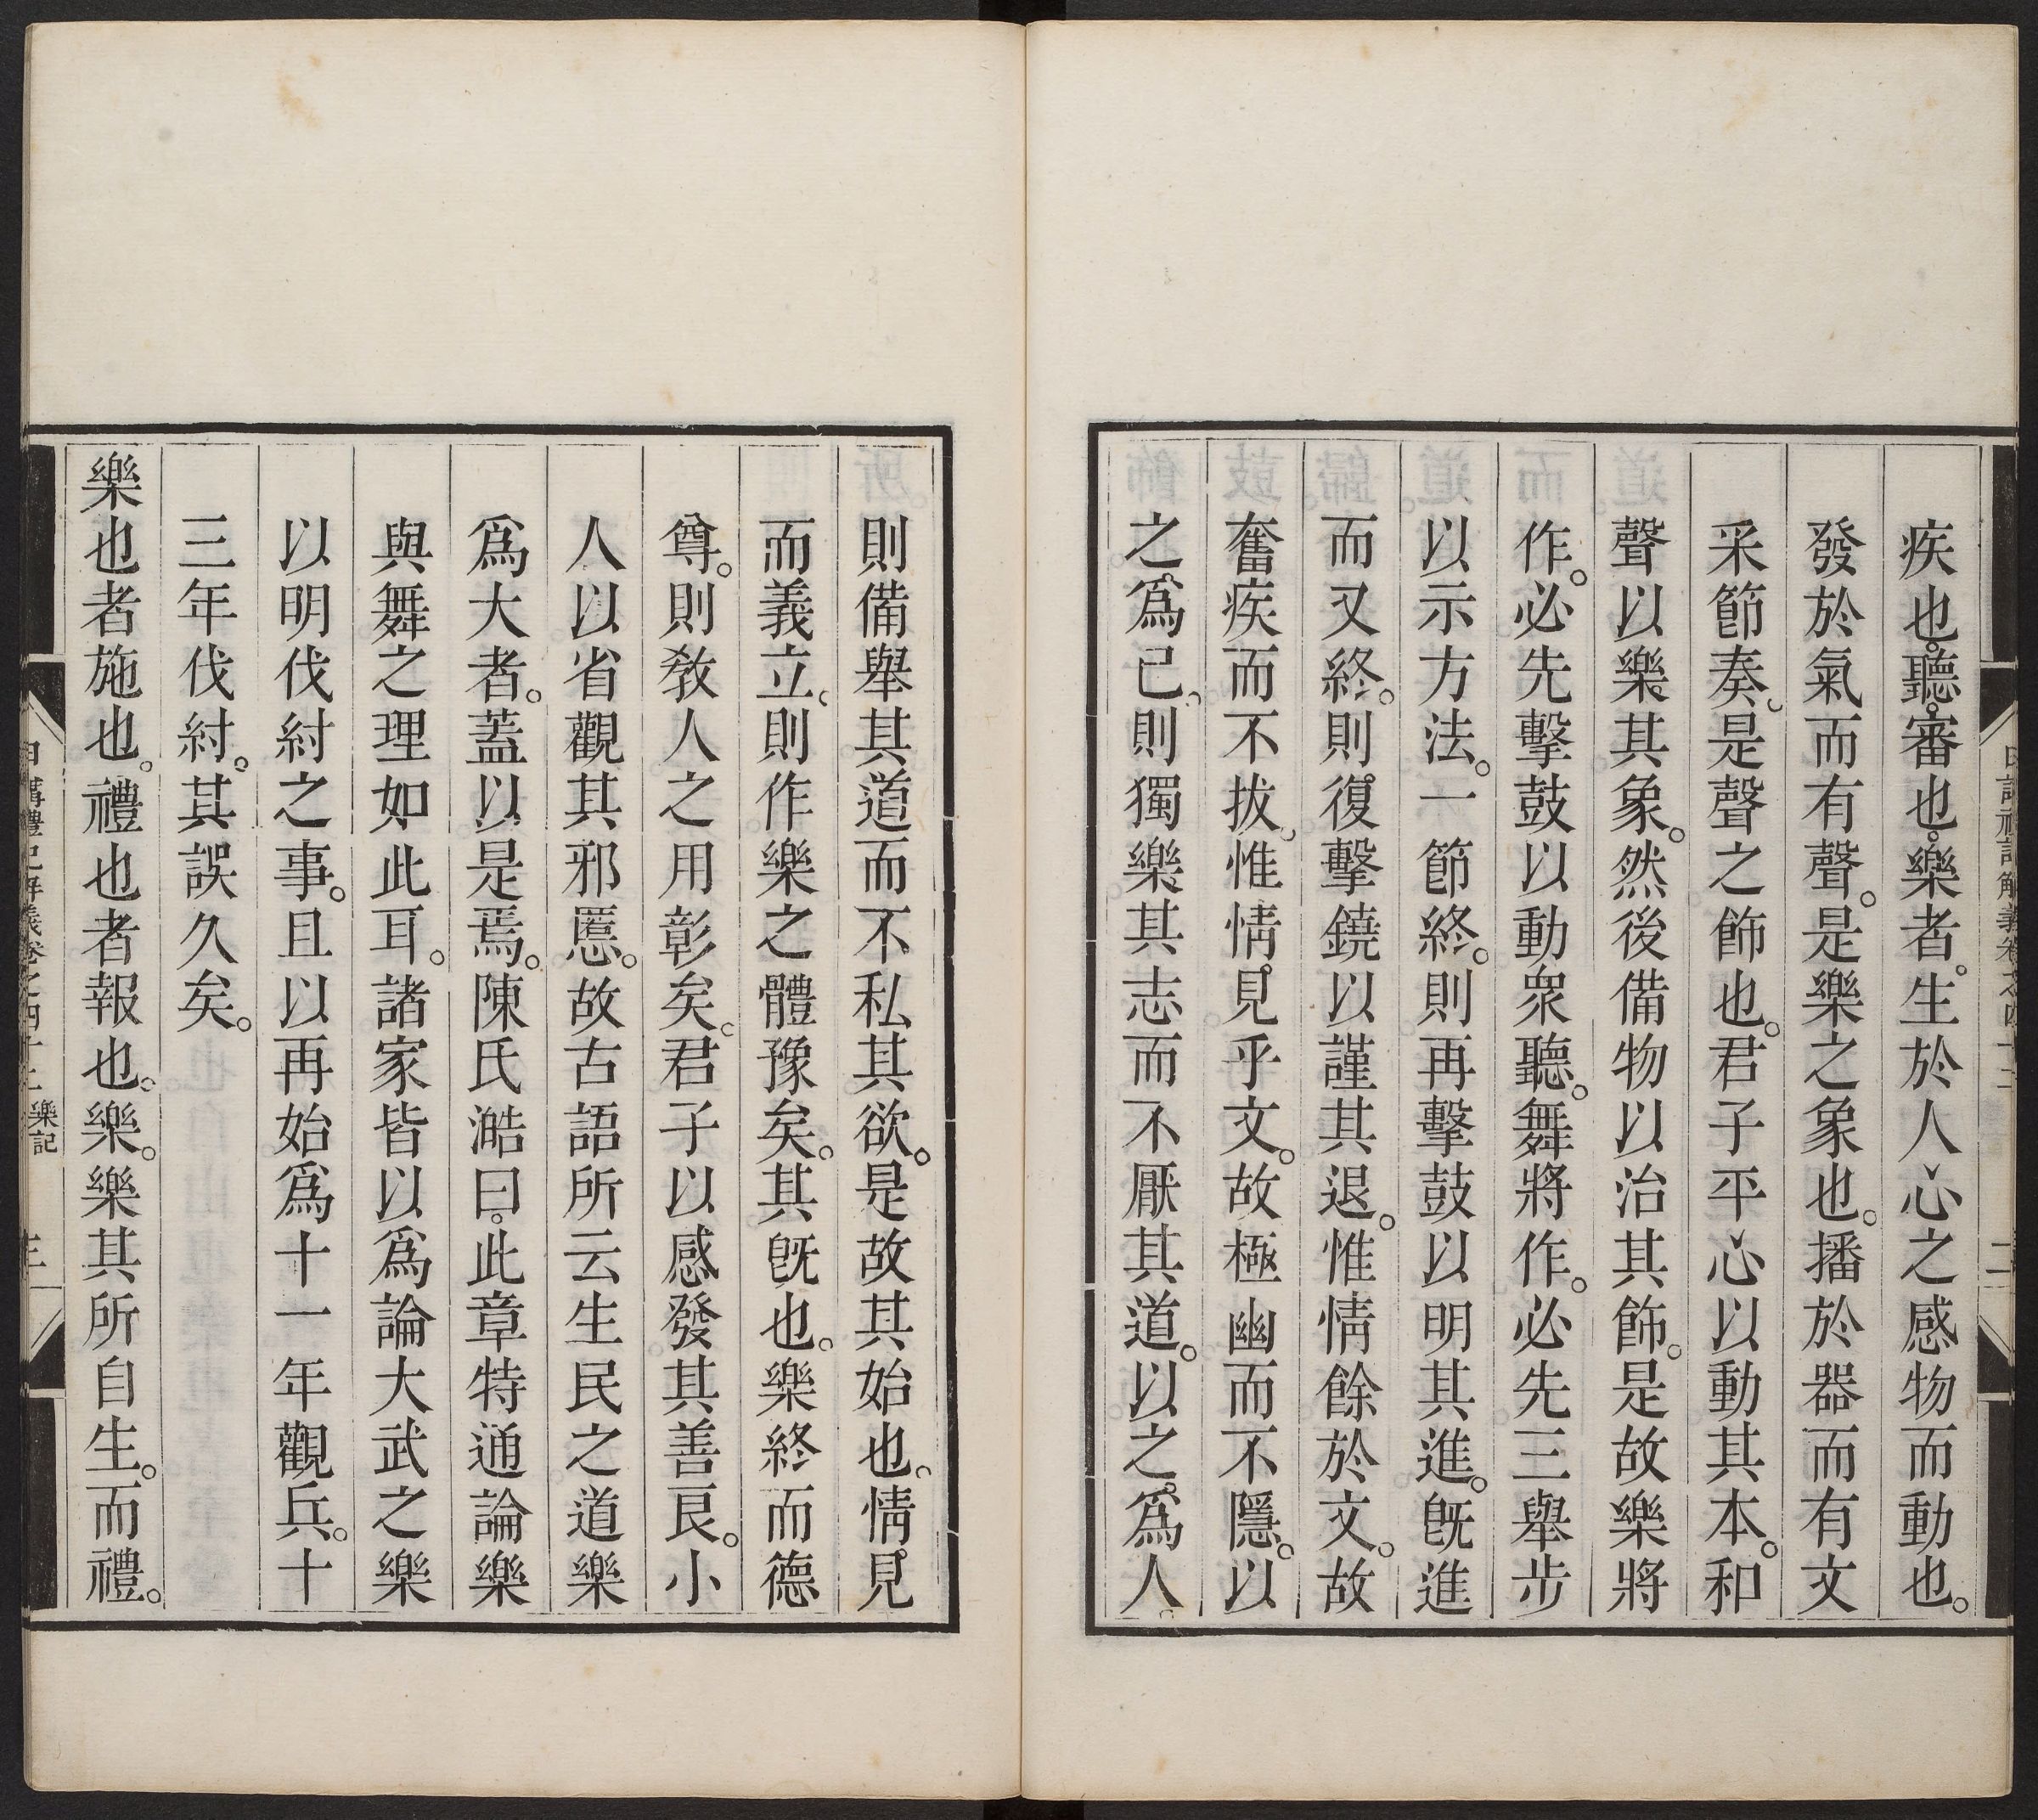 疾也。聽。審也。樂者。生於人心之感物而動也。
發於氣而有聲。是樂之象也。播於器而有文
采節奏。是聲之飾也。君子平心以動其本。和
聲以樂其象。然後備物以治其飾。是故樂將
作。必先擊鼓以動衆聽。舞將作。必先三舉步
以示方法。一節終。則再擊鼓以明其進。旣進
而又終。則復擊鐃以謹其退。惟情餘於文。故
奮疾而不拔。惟情見乎文。故極幽而不隱。以
之爲已。則獨樂其志而不厭其道。以之爲人。
則備舉其道而不私其欲。是故其始也。情見
而義立。則作樂之體豫矣。其旣也。樂終而德
尊。則敎人之用彰矣。君子以感發其善良。小
人以省觀其邪慝。故古語所云生民之道樂
爲大者。蓋以是焉。陳氏澔曰。此章特通論樂
與舞之理如此耳。諸家皆以爲論大武之樂
以明伐紂之事。且以再始爲十一年觀兵。十
三年伐紂。其誤久矣。
樂也者施也。禮也者報也。樂。樂其所自生。而禮。
日講禮記解義卷之四十二 樂記 三